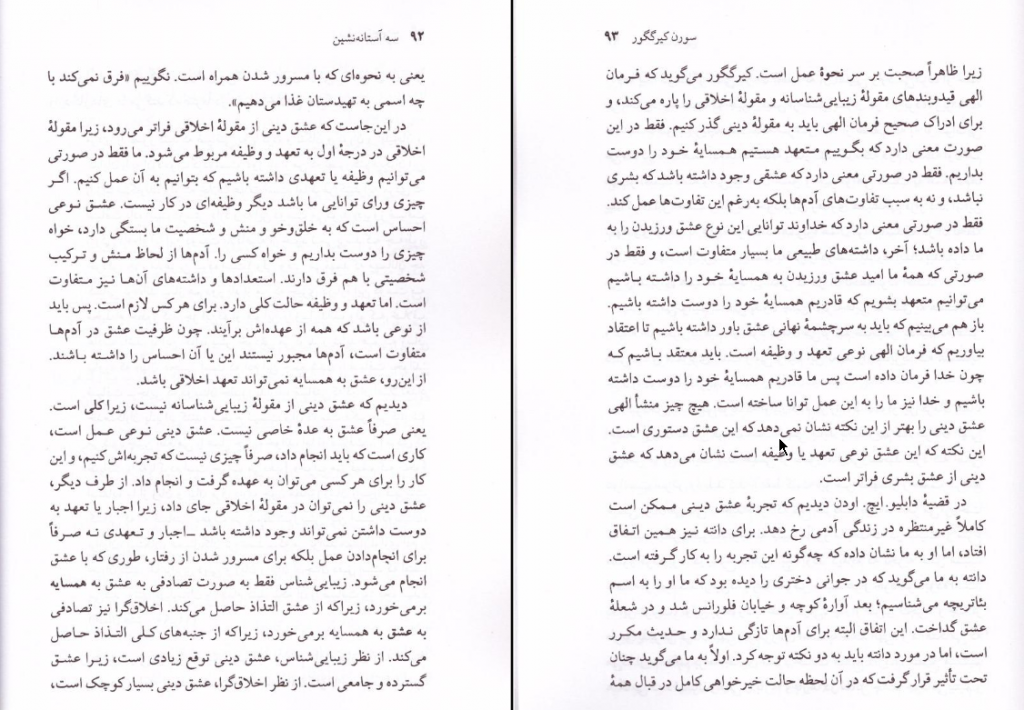 ۹۲ سه آستانه‌نشین
یعنی به نحوه‌ای که با مسرور شدن همراه است. نگوییم «فرق نمی‌کند با
چه اسمی به تهیدستان غذا می‌دهیم».
در این‌جاست که عشق دینی از مقولهٔ اخلاقی فراتر می‌رود، زیرا مقولهٔ
اخلاقی در درجهٔ اول به تعهد و وظیفه مربوط می‌شود. ما فقط در صورتی
می‌توانیم وظیفه یا تعهدی داشته باشیم که بتوانیم به آن عمل کنیم. اگر
چیزی ورای توانایی ما باشد دیگر وظیفه‌ای در کار نیست. عشق نوعی
احساس است که به خلق‌وخو و منش و شخصیت ما بستگی دارد، خواه
چیزی را دوست بداریم و خواه کسی را. آدم‌ها از لحاظ منش و ترکیب
شخصیتی با هم فرق دارند. استعدادها و داشته‌های آن‌ها نیز متفاوت
است. اما تعهد و وظیفه حالت کلی دارد. برای هر کس لازم است. پس باید
از نوعی باشد که همه از عهده‌اش برآیند. چون ظرفیت عشق در آدم‌ها
متفاوت است، آدم‌ها مجبور نیستند این یا آن احساس را داشته باشند.
از این‌رو، عشق به همسایه نمی‌تواند تعهد اخلاقی باشد.
دیدیم که عشق دینی از مقولهٔ زیبایی‌شناسانه نیست، زیرا کلی است.
یعنی صرفاً عشق به عدهٔ خاصی نیست. عشق دینی نوعی عمل است،
کاری است که باید انجام داد، صرفاً چیزی نیست که تجربه‌اش کنیم، و این
کار را برای هر کسی می‌توان به عهده گرفت و انجام داد. از طرف دیگر،
عشق دینی را نمی‌توان در مقولهٔ اخلاقی جای داد، زیرا اجبار یا تعهد به
دوست داشتن نمی‌تواند وجود داشته باشد ــ اجبار و تعهدی نه صرفاً
برای انجام‌دادن عمل بلکه برای مسرور شدن از رفتار، طوری که با عشق
انجام می‌شود. زیبایی‌شناس فقط به صورت تصادفی به عشق به همسایه
برمی‌خورد، زیرا که از عشق التذاذ حاصل می‌کند. اخلاق‌گرا نیز تصادفی
به عشق به همسایه برمی‌خورد، زیرا که از جنبه‌های کلی التذاذ حاصل
می‌کند. از نظر زیبایی‌شناس، عشق دینی توقع زیادی است، زیرا عشق
گسترده و جامعی است. از نظر اخلاق‌گرا، عشق دینی بسیار کوچک است،
سورن کیرگگور ۹۳
زیرا ظاهراً صحبت بر سر نحوهٔ عمل است. کیرگگور می‌گوید که فرمان
الهی قیدوبندهای مقولهٔ زیبایی‌شناسانه و مقولهٔ اخلاقی را پاره می‌کند، و
برای ادراک صحیح فرمان الهی باید به مقولهٔ دینی گذر کنیم. فقط در این
صورت معنی دارد که بگوییم متعهد هستیم همسایهٔ خود را دوست
بداریم. فقط در صورتی معنی دارد که عشقی وجود داشته باشد که بشری
نباشد، و نه به سبب تفاوت‌های آدم‌ها بلکه به‌رغم این تفاوت‌ها عمل کند.
فقط در صورتی معنی دارد که خداوند توانایی این نوع عشق ورزیدن را به
ما داده باشد؛ آخر، داشته‌های طبیعی ما بسیار متفاوت است، و فقط در
صورتی که همهٔ ما امید عشق ورزیدن به همسایهٔ خود را داشته باشیم
می‌توانیم متعهد بشویم که قادریم همسایهٔ خود را دوست داشته باشیم.
باز هم می‌بینیم که باید به سرچشمهٔ نهانی عشق باور داشته باشیم تا اعتقاد
بیاوریم که فرمان الهی نوعی تعهد و وظیفه است. باید معتقد باشیم که
چون خدا فرمان داده است پس ما قادریم همسایهٔ خود را دوست داشته
باشیم و خدا نیز ما را به این عمل توانا ساخته است. هیچ چیز منشأ الهی
عشق دینی را بهتر از این نکته نشان نمی‌دهد که این عشق دستوری است.
این نکته که این عشق نوعی تعهد یا وظیفه است نشان می‌دهد که عشق
دینی از عشق بشری فراتر است.
در قضیهٔ دابلیو. ایچ. اودن دیدیم که تجربهٔ عشق دینی ممکن است
کاملاً غیرمنتظره در زندگی آدمی رخ دهد. برای دانته نیز همین اتفاق
افتاد، اما او به ما نشان داده که چه‌گونه این تجربه را به کار گرفته است.
دانته به ما می‌گوید که در جوانی دختری را دیده بود که ما او را به اسم
بئاتریچه می‌شناسیم؛ بعد آوارهٔ کوچه و خیابان فلورانس شد و در شعلهٔ
عشق گداخت. این اتفاق البته برای آدم‌ها تازگی ندارد و حدیث مکرر
است، اما در مورد دانته باید به دو نکته توجه کرد. اولاً به ما می‌گوید چنان
تحت تأثیر قرار گرفت که در آن لحظه حالت خیرخواهی کامل در قبال همهٔ